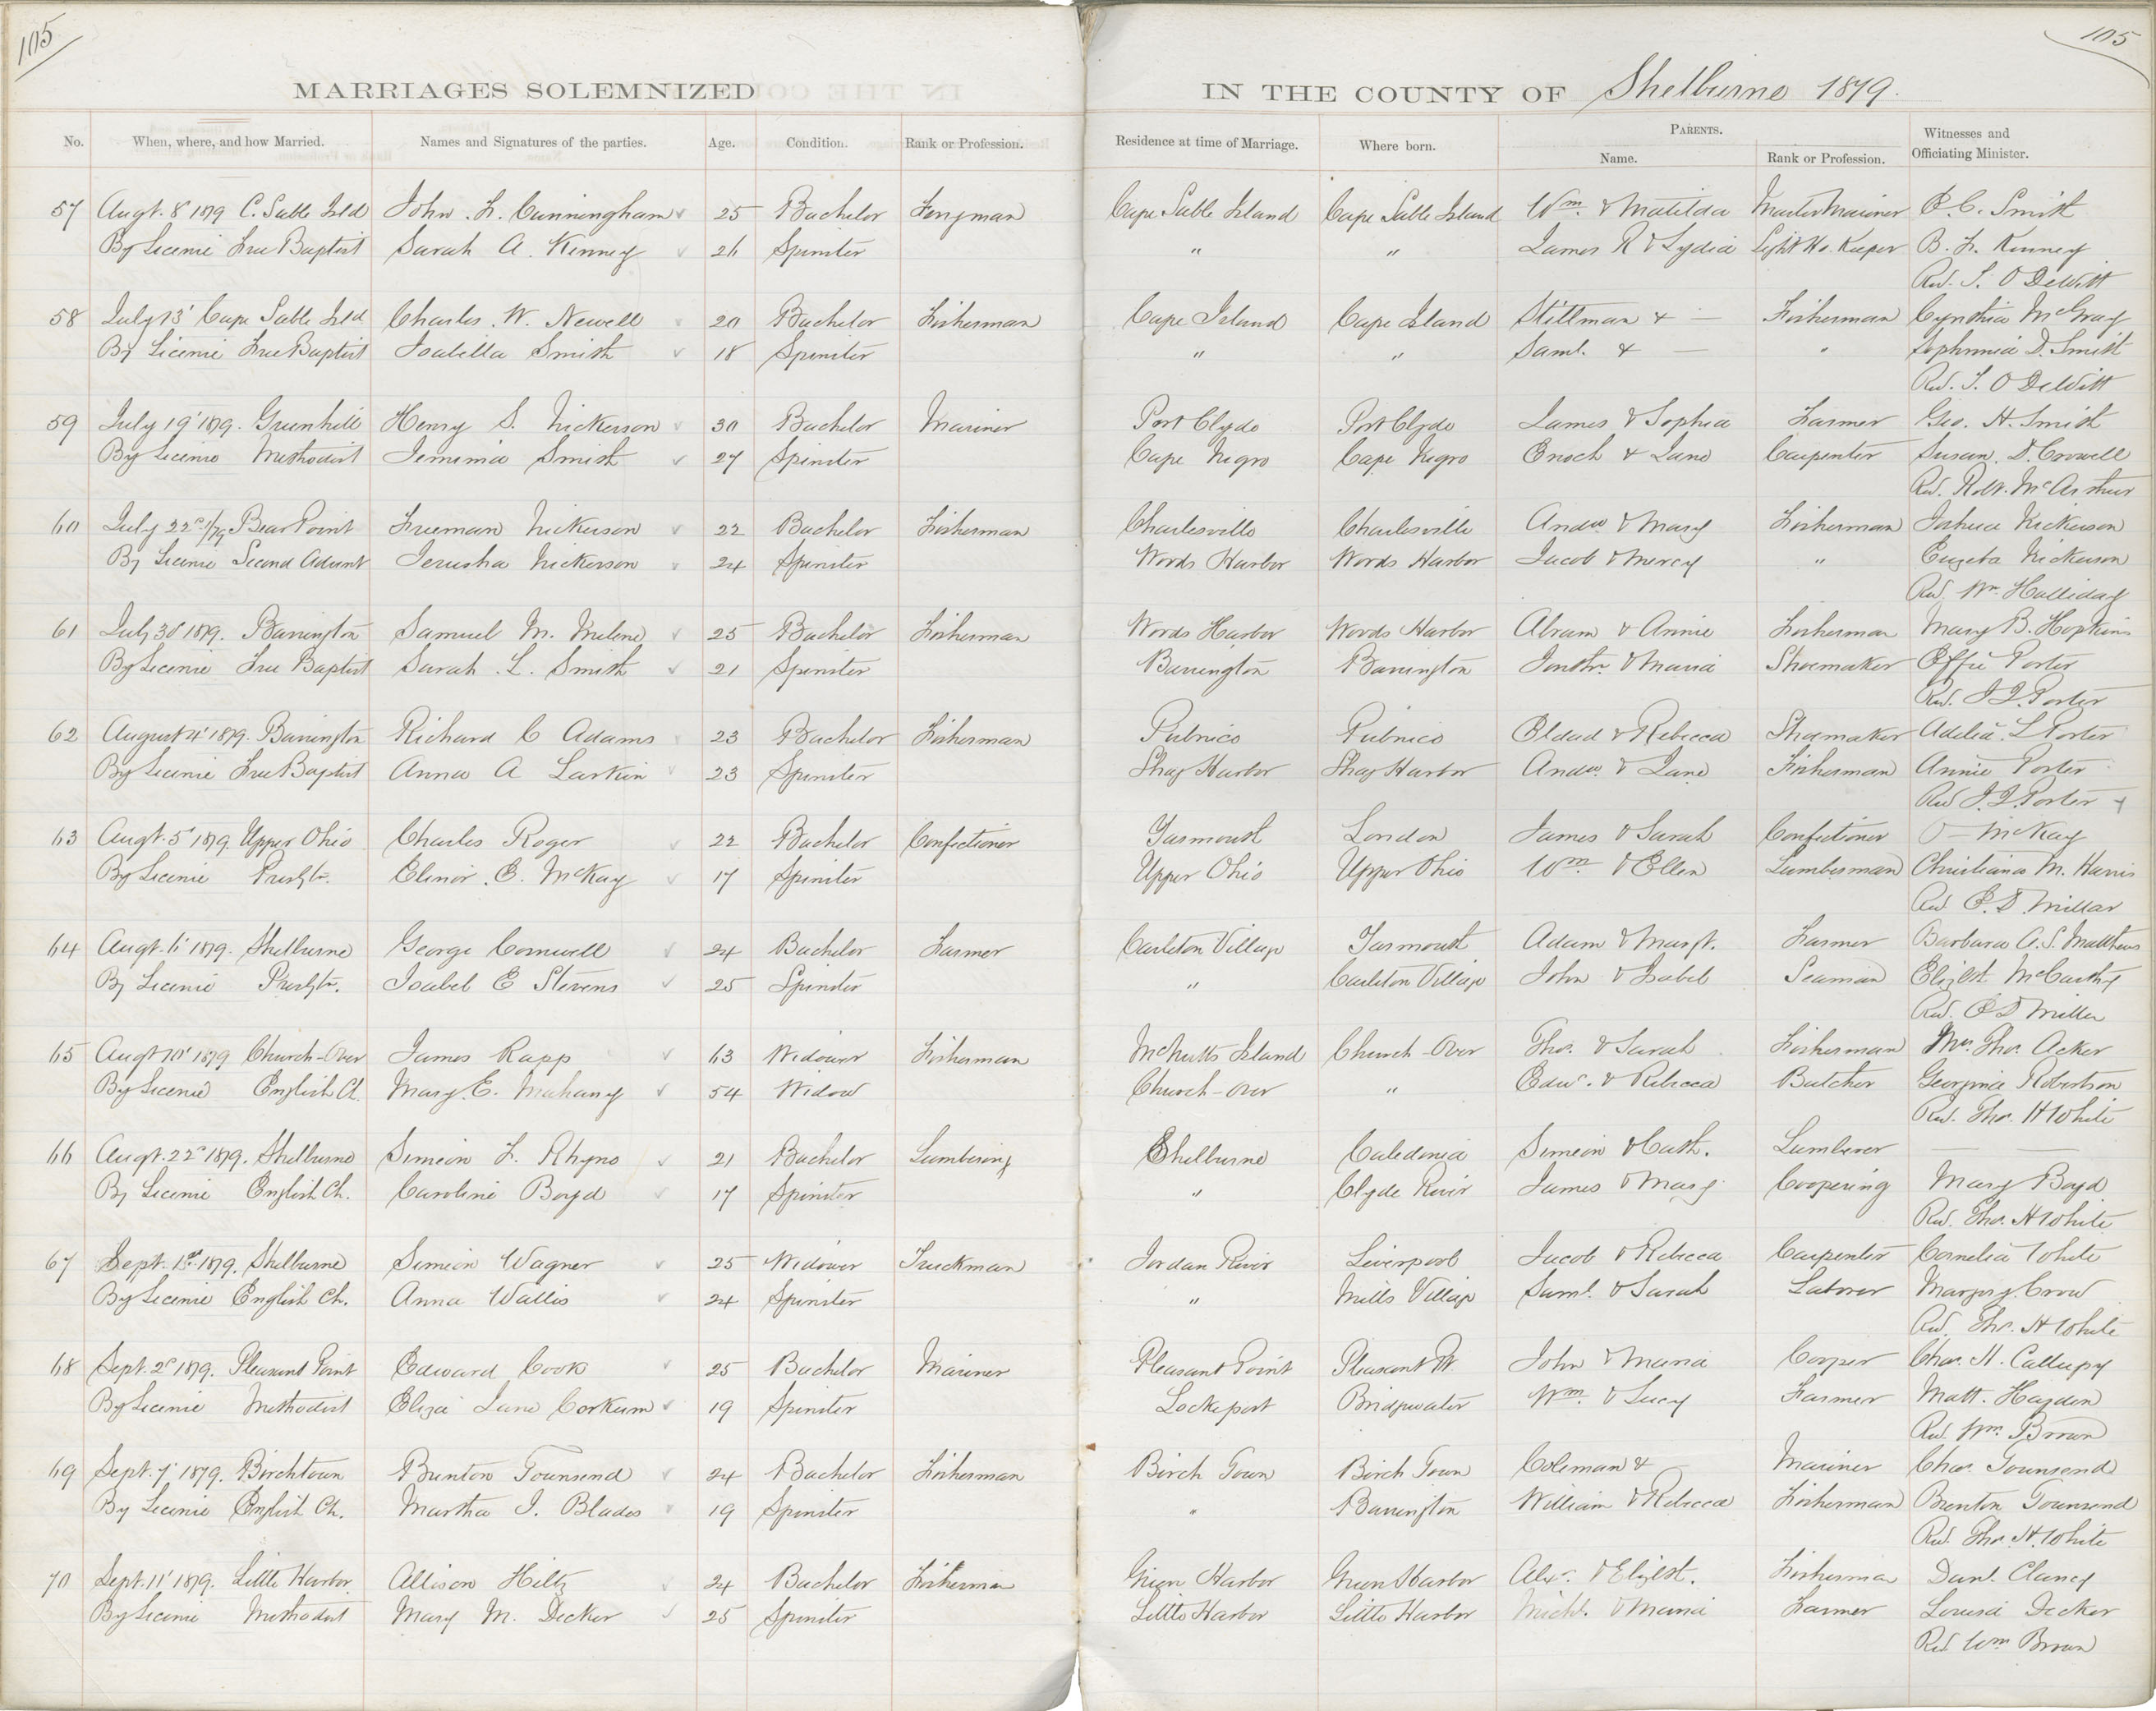 105
105
MARRIAGES SOLEMNIZED IN THE COUNTY OF Shelburne 1879.
No. When, where, and how Married. Names and Signatures of the parties. Age. Condition. Rank or Profession. Residence at time of Marriage. Where born. PARENTS. Name. Rank or Profession. Witnesses and Officiating Minister.
57 Augt. 8' 1879 C. Sable Isld John. H. Cunningham 25 Bachelor Cape Sable Island Cape Sable Island Wm. & Matilda Master Mariner P. C. Smith
By Licence Free Baptist Sarah A. Kenney 26 Spinster " " James R & Lydia Light Ho. Keeper B. H. Kenney
Rev. T. O DeWitt
58 July 13' Cape Sable Isld Charles. W. Newell 20 Bachelor Fisherman Cape Island Cape Island Stillman & — Fisherman Cynthia McGray
By Licence Free Baptist Isabella Smith 18 Spinster " " Saml. & — " Sophronia D. Smith
Rev. T. O DeWitt
59 July 19' 1879. Greenhill Henry S. Nickerson 30 Bachelor Mariner Port Clyde Port Clyde James & Sophia Farmer Geo. H. Smith
By Licence Methodist Jemima Smith 27 Spinster Cape Negro Cape Negro Enoch & Jane Carpenter Susan. D. Crowell
Rev. Robt. McArthur
60 July 22d /79 Bear Point Freeman Nickerson 22 Bachelor Fisherman Charlesville Charlesville Andw & Mary Fisherman Joshua Nickerson
By Licence Second Advent Jerusha Nickerson 24 Spinster Woods Harbor Woods Harbor Jacob & Mercy " Nickerson
Rev. Wm. Halliday
61 July 30' 1879. Barrington Samuel M. Melene 25 Bachelor Fisherman Woods Harbor Woods Harbor Abram & Annie Fisherman Mary B. Hopkins
By Licence Free Baptist Sarah. L. Smith 21 Spinster Barrington Barrington Jonothn. & Maria Shoemaker Effie Porter
Rev. J I. Porter
62 August 4' 1879. Barrington Richard C Adams 23 Bachelor Fisherman Pubnico Pubnico Eldad & Rebecca Shoemaker Adelia. L Porter
By Licence Free Baptist Anna A Larkin 23 Spinster Shag Harbor Shag Harbor Andw. & Jane Fisherman Annie Porter
Rev J. I Porter
63 Augt. 5' 1879. Upper Ohio Charles Roger 22 Bachelor Confectioner Yarmouth London James & Sarah Confectioner O — McKay
By Licence Presbtn. Elinor. E. McKay 17 Spinster Upper Ohio Upper Ohio Wm. & Ellen Lumberman Christiana M. Harris
Rev. E. D. Millar
64 Augt. 6' 1879. Shelburne George Cornwell 24 Bachelor Farmer Carleton Village Yarmouth Adam & Margt. Farmer Barbara A. S. Matthews
By Licence Presbtn. Isabel E Stevens 25 Spinster " Carleton Village John & Isabel Seaman Elizbth McCarthy
Rev. E D Millar
65 Augt 10' 1879 Church-Over James Rapp 63 Widower Fisherman McNutts Island Church-Over Thos. & Sarah Fisherman Mrs. Thos. Acker
By Licence English Ch. Mary. E. Mahany 54 Widow Church-Over " Edwd. & Rebecca Butcher Georgina Robertson
Rev. Thos. H White
66 Augt. 22d 1879. Shelburne Simeon F. Rhyno 21 Bachelor Lumbering Shelburne Caledonia Simeon & Cath. Lumberer — —
By Licence English Ch. Caroline Boyd 17 Spinster " Clyde River James & Mary Coopering Mary Boyd
Rev. Thos. H White
67 Sept. 1st 1879. Shelburne Simeon Wagner 25 Widower Truckman Jordan River Liverpool Jacob & Rebecca Carpenter Cornelia White
By Licence English Ch. Anna Wallis 24 Spinster " Mills Village Saml. & Sarah Laborer Margery. Crow
Rev. Thos. H White
68 Sept. 2d 1879. Pleasant Point Edward Cook 25 Bachelor Mariner Pleasant Point Pleasant Pt. John & Maria Cooper Chas. H. Callupy
By Licence Methodist Eliza Jane Corkum 19 Spinster Lockeport Bridgewater Wm. & Lucy Farmer Matt. Hayden
Rev. Wm. Brown
69 Sept. 7' 1879. Birchtown Brenton Townsend 24 Bachelor Fisherman Birch Town Birch Town Coleman & — Mariner Chas. Townsend
By Licence English Ch. Martha J. Blades 19 Spinster " Barrington William & Rebecca Fisherman Brenton Townsend
Rev. Thos. H. White
70 Sept. 11' 1879. Little Harbor Allison Hiltz 24 Bachelor Fisherman Green Harbor Green Harbor Alexr. & Elizbth. Fisherman Danl. Clancy
By Licence Methodist Mary M. Decker 25 Spinster Little Harbor Little Harbor Michl. & Maria Farmer Louisa Decker
Rev. Wm Brown